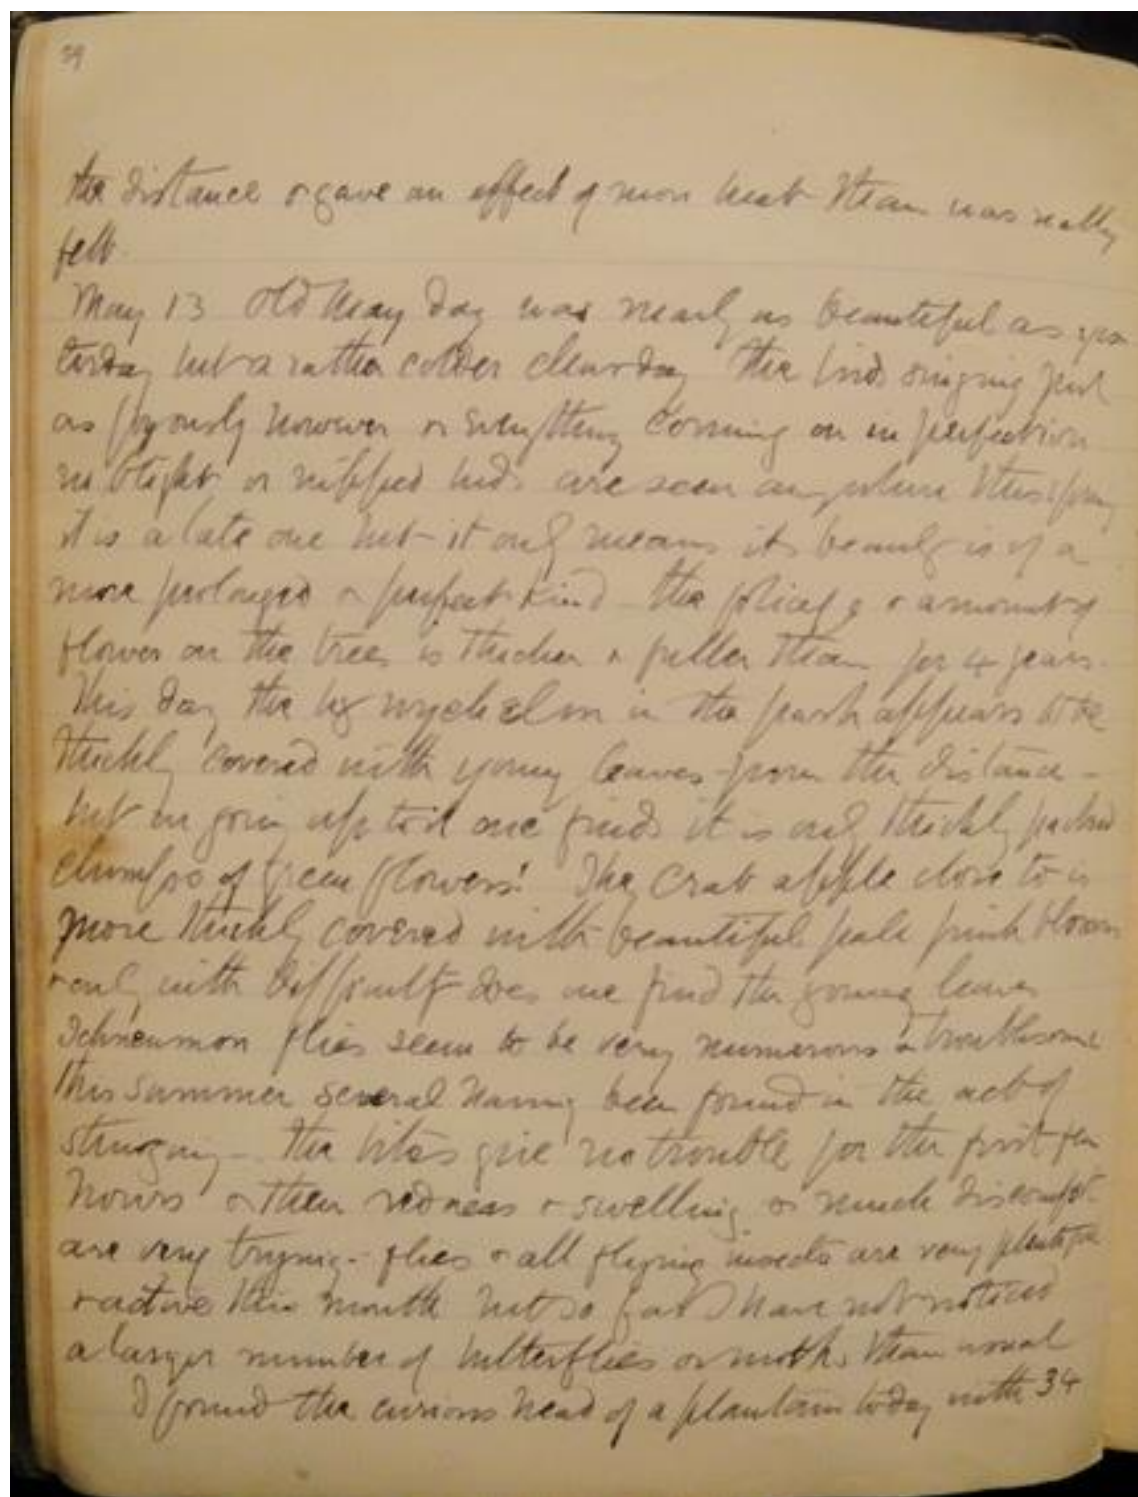 39
the distance & gave an effect of more heat than was really
felt.
May 13 Old May Day was nearly as beautiful as yes-
terday but a rather colder clear day the birds singing just
as joyously however & everything coming on in perfection
no blight or nipped buds are seen anywhere this spring
it is a late one but it only means its beauty is of a
more prolonged & perfect kind the foliage & amount of
flower on the trees is thicker & fuller than for 4 years.
This day the big wych elm in the park appears to be
thickly covered with young leaves from the distance -
but on going up to it one finds it is only thickly packed
clumps of green flowers! The Crab apple close to is
more thickly covered with beautiful pale pink bloom
& only with difficulty does one find the young leaves
Ichneumon flies seem to be very numerous & troublesome
this summer several having been found in the act of
stinging - the bites give no trouble for the first few
hours & then redness & swelling & much discomfort
are very trying - flies & all flying insects are very plentiful
& active this month but so far I have not noticed
a larger number of butterflies or moths than usual
I found the curious head of a plantain today with 34